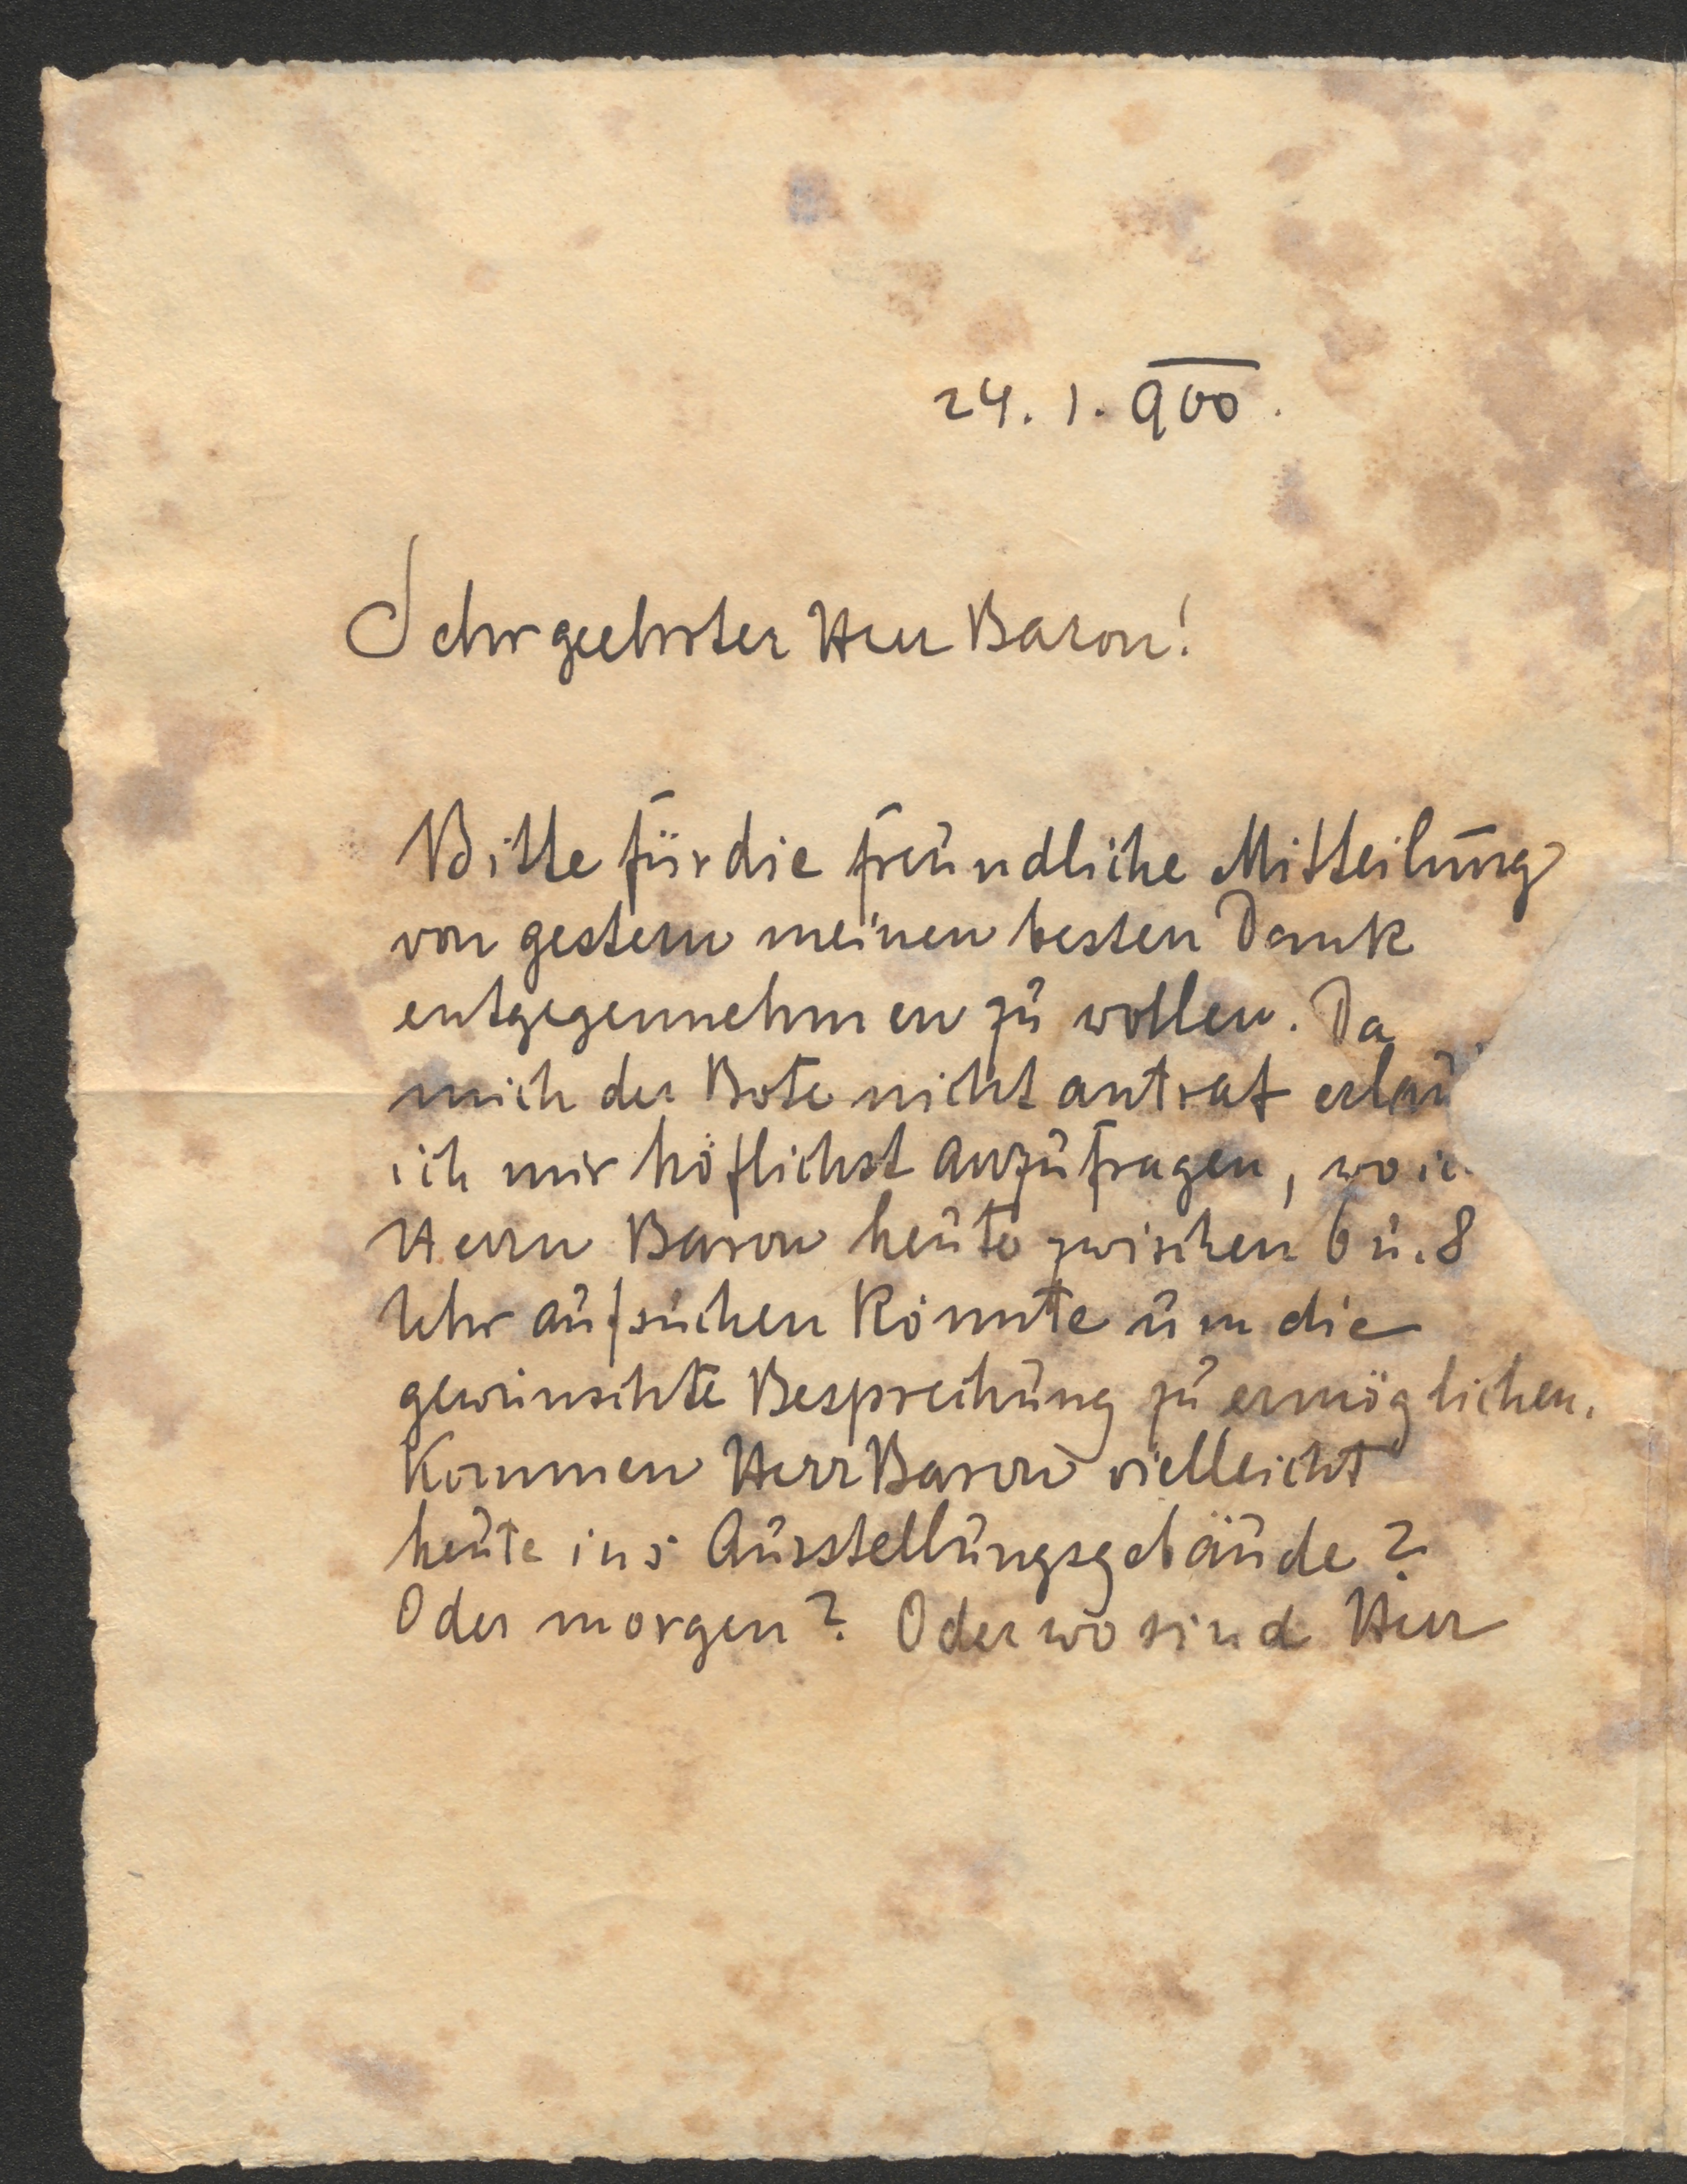 24. 1. 900.
Sehr geehrter Herr Baron!
Bitte für die freundliche Mitteilung
von gestern meinen besten Dank
entgegennehmen zu wollen. Da
mich der Bote nicht antraf erlau
ich mir höflichst anzufragen, wo ic
Herrn Baron heute zwischen 6 u. 8
Uhr aufsuchen könnte um die
gewünschte Besprechung zu ermöglichen.
Kommen Herr Baron vielleicht
heute ins Ausstellungsgebäude?
Oder morgen? Oder wo sind Herr